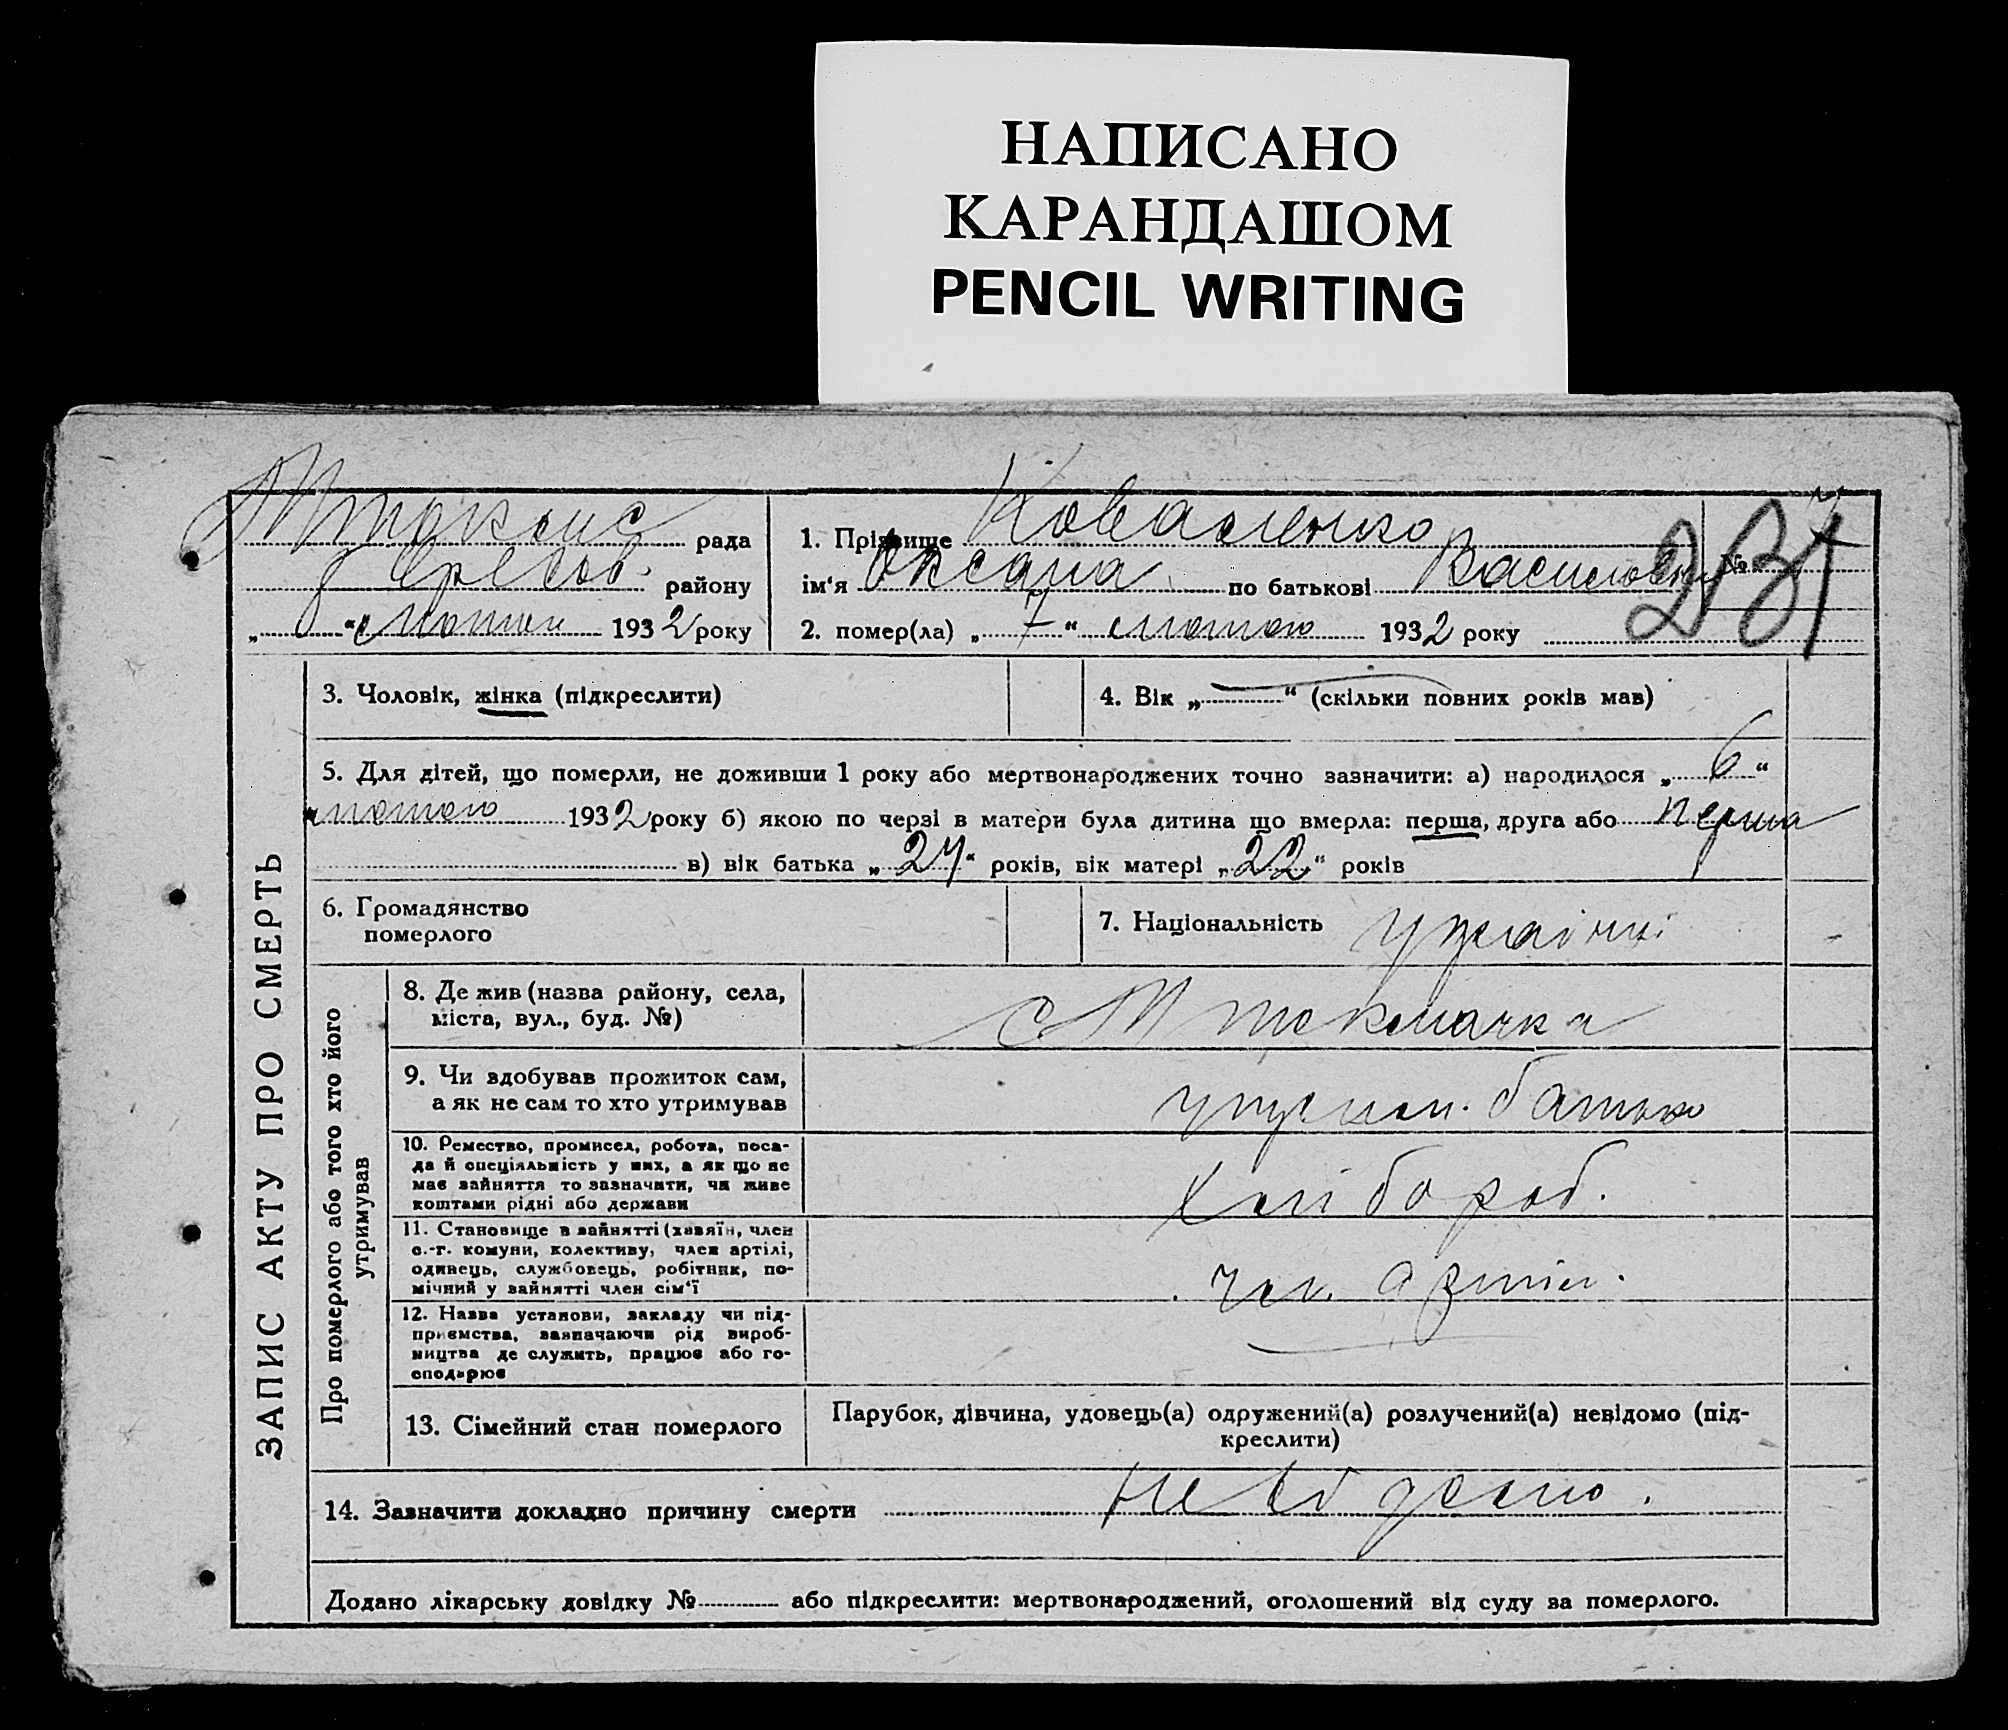 НАПИСАНО
КАРАНДАШОМ
PENCIL WRITING
рада
району
„ “ 1932 року
1. Прізвище Коваленко
ім‘я Оксана по батькові
№
2. помер(ла) „ 7 “ лютого 1932 року
ЗАПИС АКТУ ПРО СМЕРТЬ
3. Чоловік, жінка (підкреслити)
4. Вік „ “ (скільки повних років мав)
5. Для дітей, що померли, не доживши 1 року або мертвонароджених точно зазначити: а) народилося „ 6 “
лютого 1932 року б) якою по черзі в матери була дитина що вмерла: перша, друга або перша
в) вік батька „ 24 “ років, вік матері „ 22 “ років
6. Громадянство
померлого
7. Національність
Про померлого або того хто його
утримував
8. Де жив (назва району, села,
міста, вул., буд. №)
9. Чи здобував прожиток сам,
а як не сам то хто утримував
батько
10. Ремество, промисел, робота, поса-
да й спеціяльність у них, а як що не
має зайняття то зазначити, чи живе
коштами рідні або держави
хлібороб.
11. Становище в зайнятті (хазяїн, член
с.-г. комуни, колективу, член артілі,
одинець, службовець, робітник, по-
мічний у зайнятті член сім‘ї
чл. артіл.
12. Назва установи, закладу чи під-
приємства, зазначаючи рід вироб-
ництва де служить, працює або го-
сподарює
13. Сімейний стан померлого
Парубок, дівчина, удовець(а) одружений(а) розлучений(а) невідомо (під-
креслити)
14. Зазначити докладно причину смерти невідомо.
Додано лікарську довідку № або підкреслити: мертвонароджений, оголошений від суду за померлого.